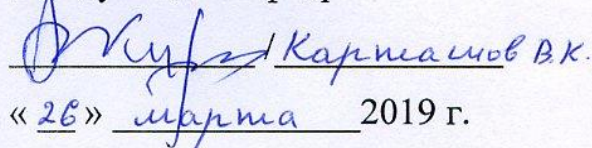 / Карташов В.К.
« 26 » марта 2019 г.